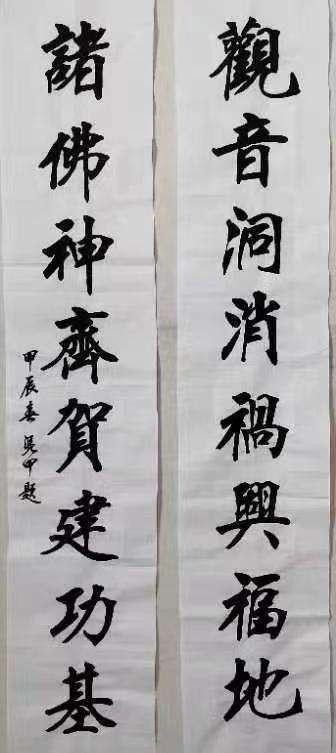 觀音洞消禍興福地
諸佛神齊賀建功基
甲辰春吴中题